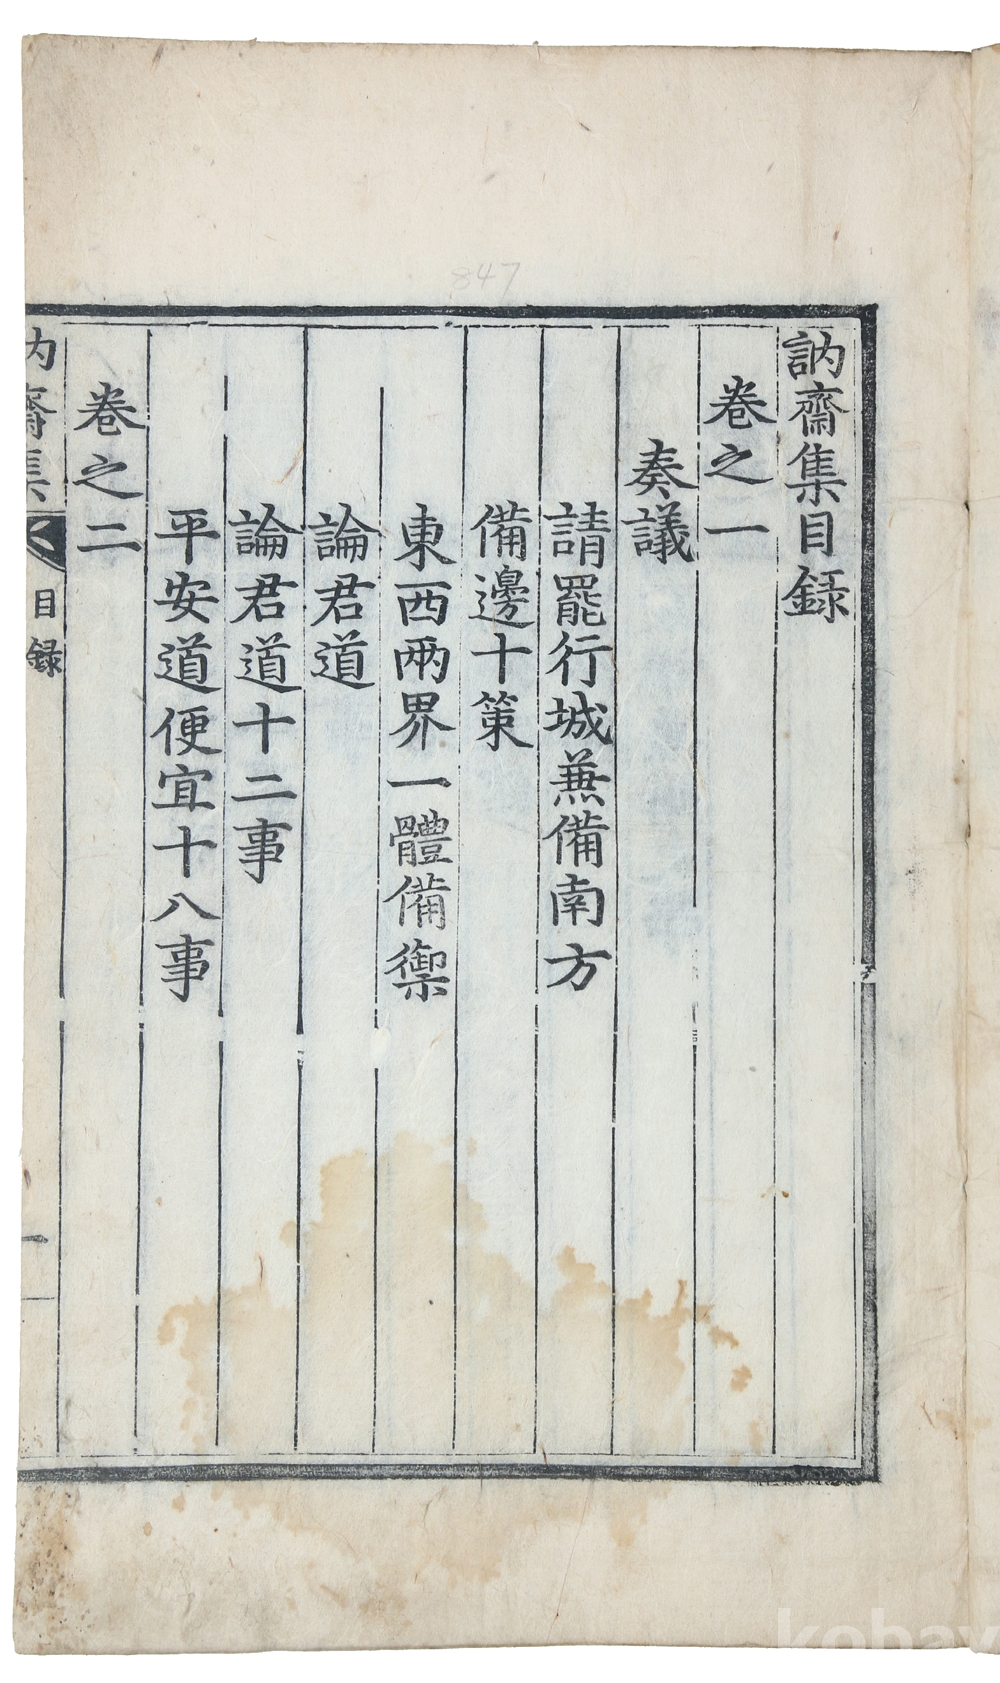 訥齋集目録
卷之一
奏議
請罷行城兼備南方
備邊十策
東西兩界一體備禦
論君道
論君道十二事
平安道便宜十八事
卷之二
訥齋集
目録
一
847
kobay